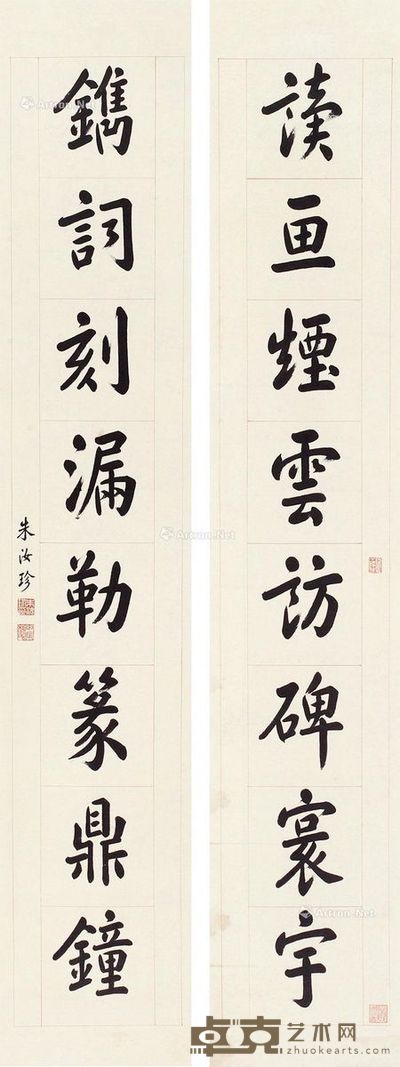 读画煙雲訪碑寰宇
鐫詞刻漏勒篆鼎鐘
朱汝珍
Artron.Net
卓克艺术网
zhuokearts.com